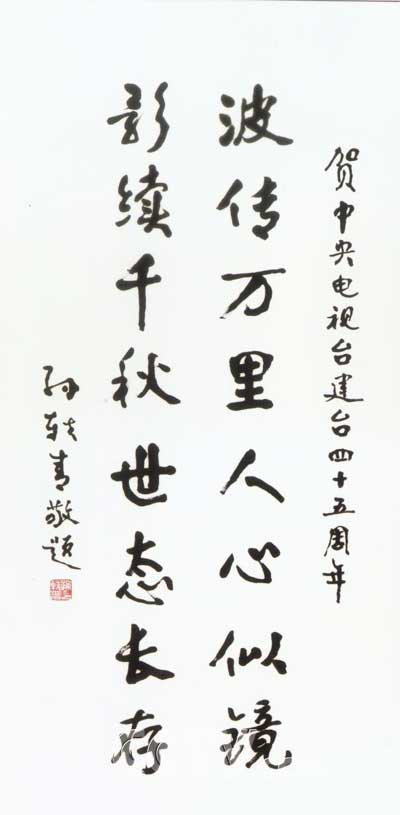 贺中央电视台建台四十五周年
波传万里人心似镜
影续千秋世态长存
孙轶青敬题